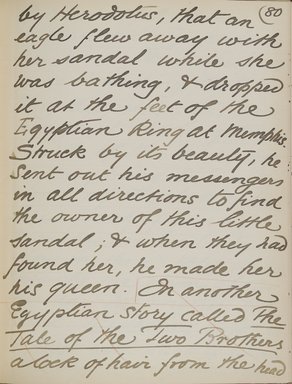 by Herodotus, that an (80)
eagle flew away with
her sandal while she
was bathing, & dropped
it at the feet of the
Egyptian King at Memphis.
Struck by its beauty, he
sent out his messengers
in all directions to find
the owner of this little
sandal; & when they had
found her, he made her
his queen. In another
Egyptian story called the
Tale of the Two Brothers
a lock of hair from the head